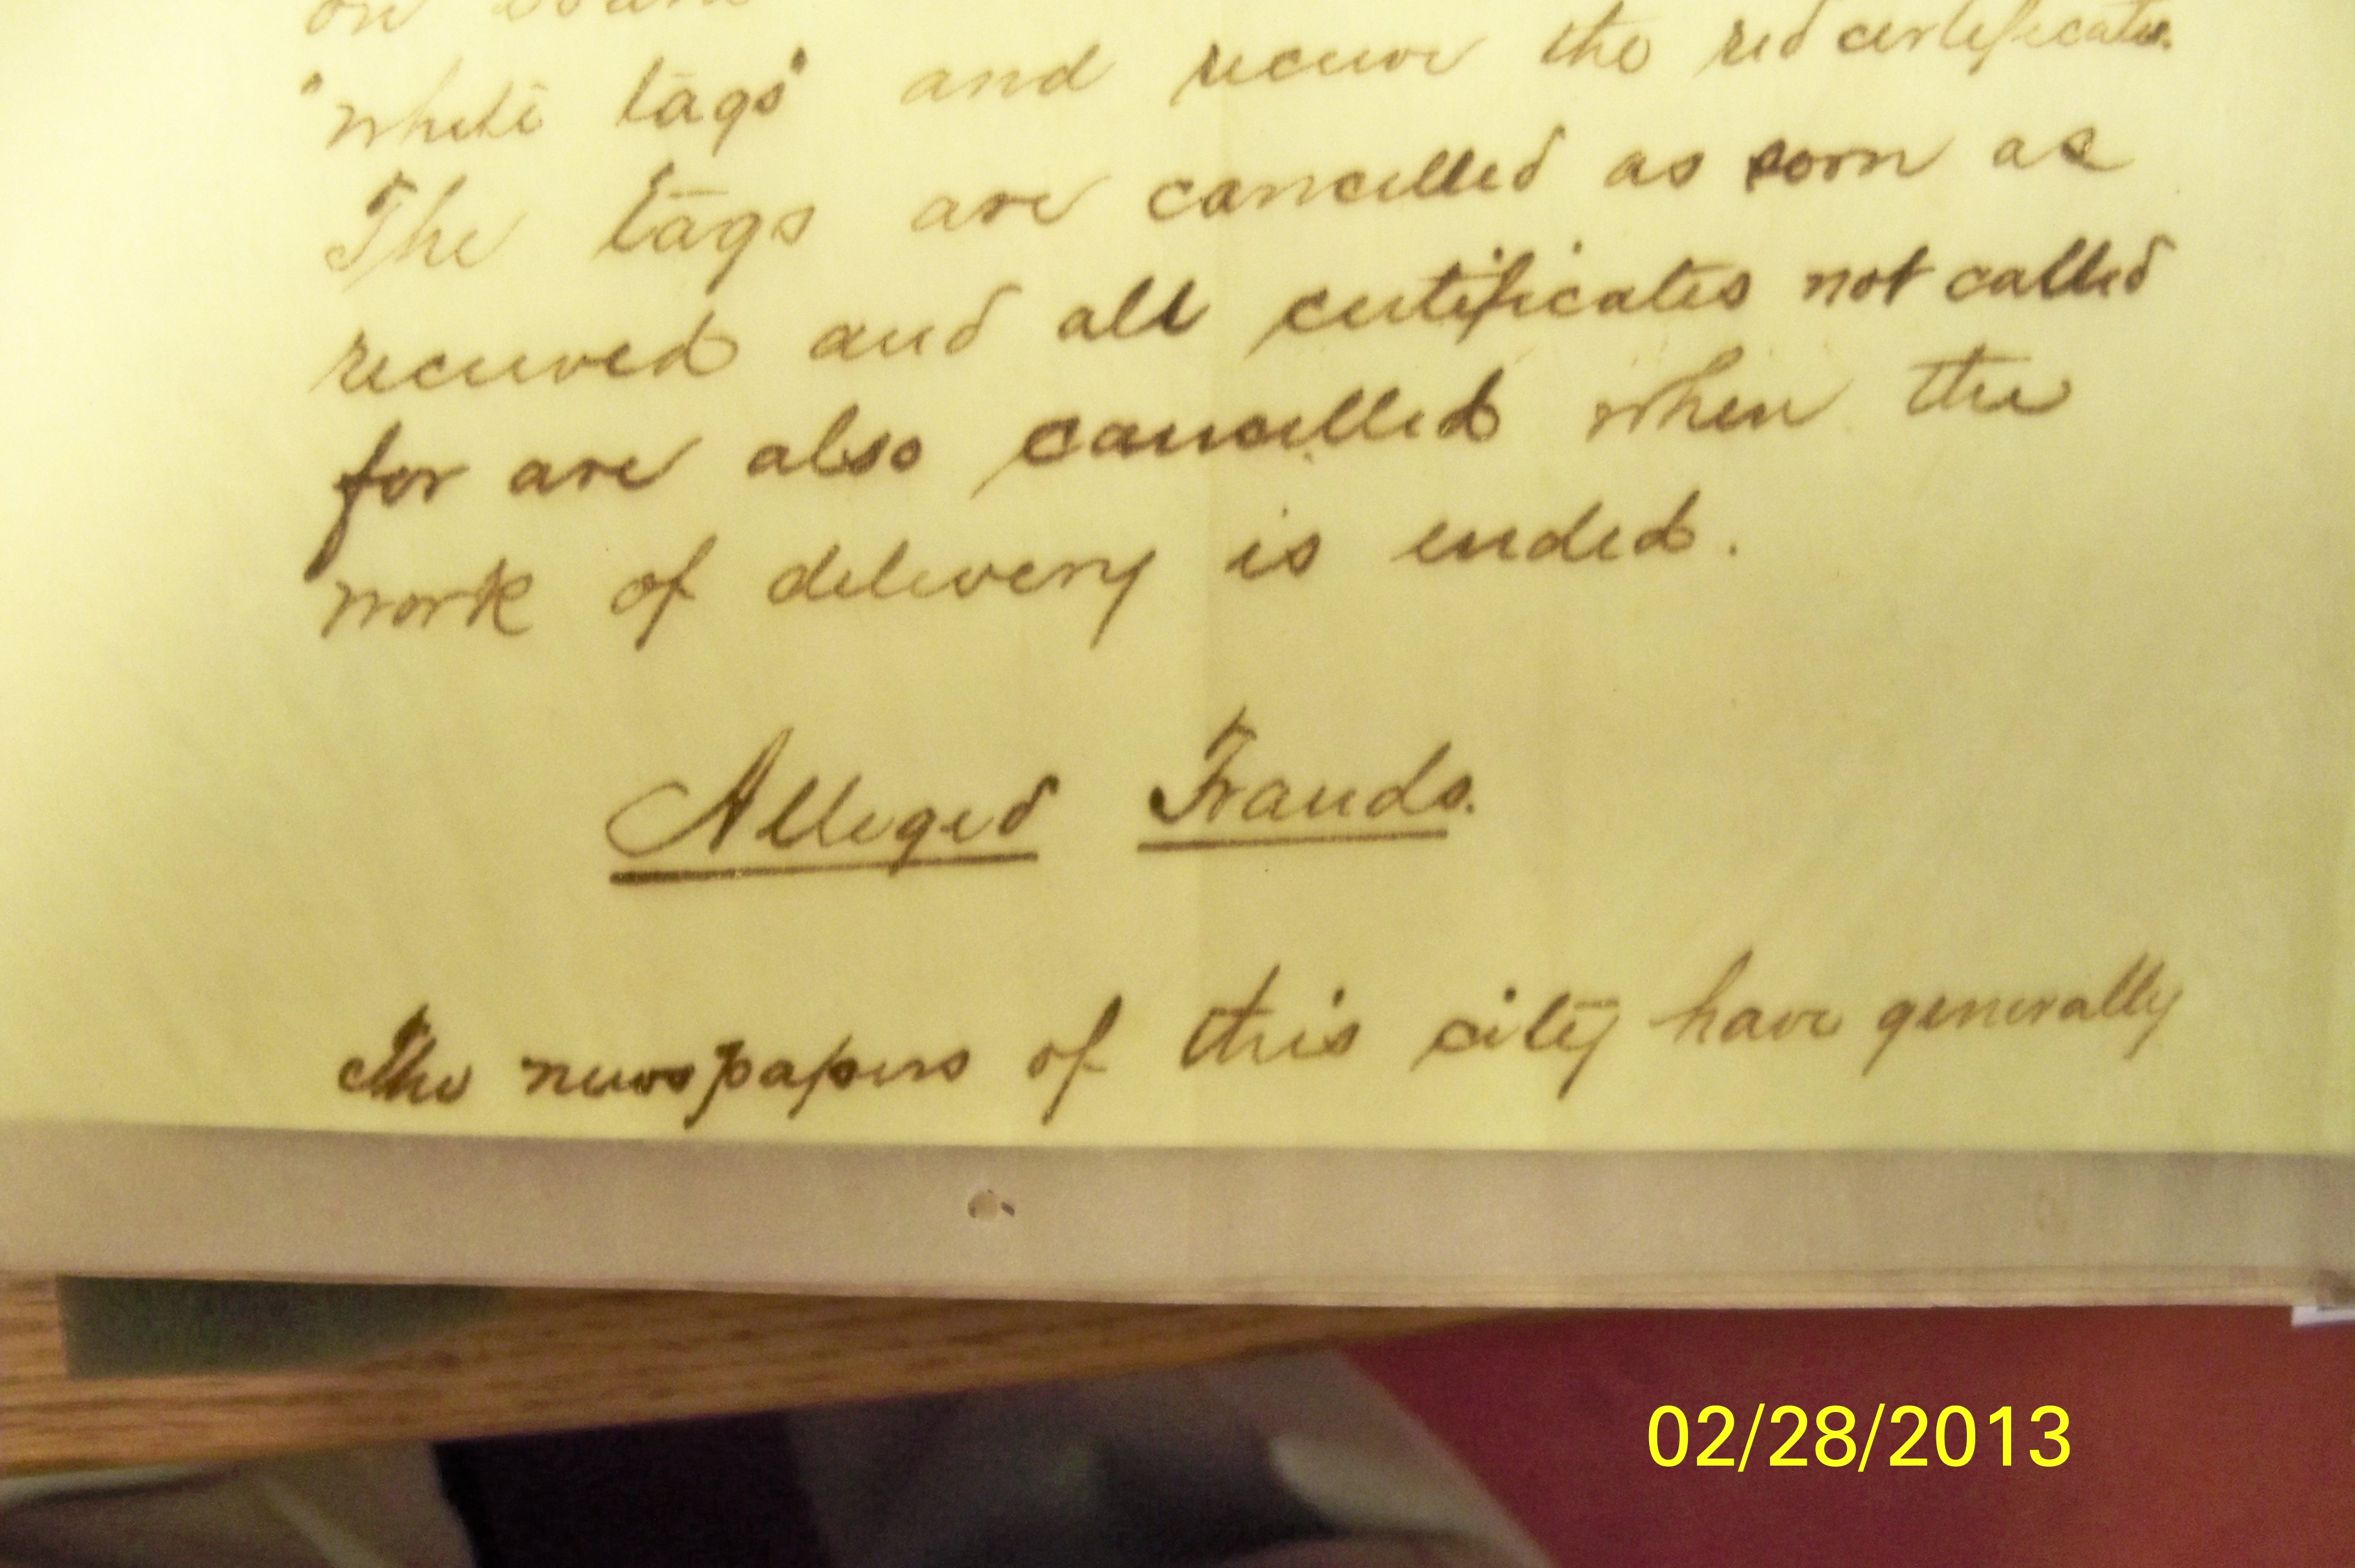 on board
"white tags" and receive the red certificates.
The tags are cancelled as soon as
received and all certificates not called
for are also cancelled when the
work of delivery is ended.
Alleged Frauds.
The newspapers of this city have generally
02/28/2013